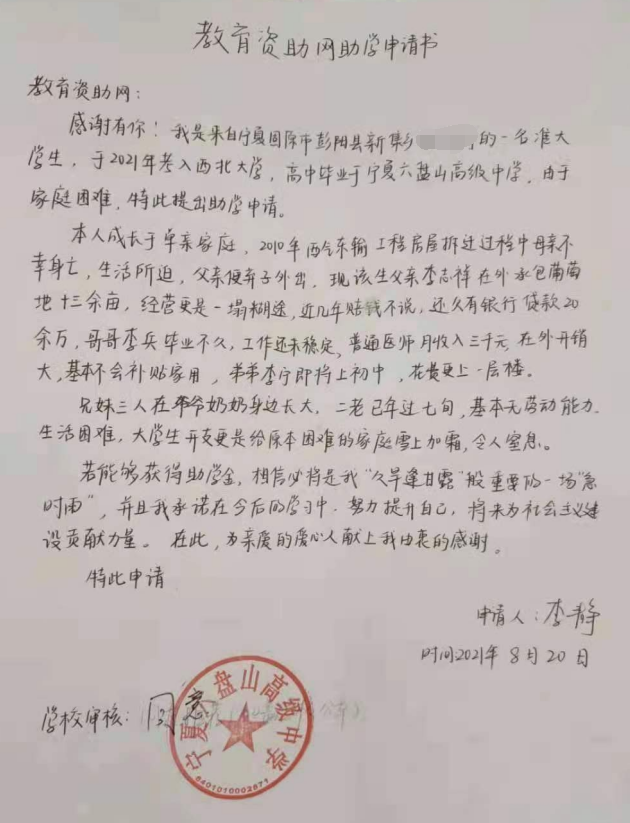 教育资助网助学申请书
教育资助网：
感谢有你！我是来自宁夏固原市彭阳县新集乡 的一名准大
学生，于2021年考入西北大学，高中毕业于宁夏六盘山高级中学，由于
家庭困难，特此提出助学申请。
本人成长于单亲家庭，2010年西气东输工程房屋拆迁过程中母亲不
幸身亡，生活所迫，父亲便弃子外出，现该生父亲李志祥在外承包葡萄
地十三余亩，经营更是一塌糊涂，近几年赔钱不说，还欠有银行贷款20
余万，哥哥李兵毕业不久，工作还未稳定，普通医师月收入三千元，在外开销
大，基本不会补贴家用，弟弟李宁即将上初中，花费更上一层楼。
兄妹三人在爷爷奶奶身边长大，二老已年过七旬，基本无劳动能力，
生活困难，大学生开支更是给原本困难的家庭雪上加霜，令人窒息。
若能够获得助学金，相信必将是我“久旱逢甘露”般重要的一场“急
时雨”，并且我承诺在今后的学习中，努力提升自己，将来为社会主义建
设贡献力量。在此，为亲爱的爱心人献上我由衷的感谢。
特此申请
申请人：李静
时间2021年8月20日
学校审核：同意
宁夏六盘山高级中学
6401010002871